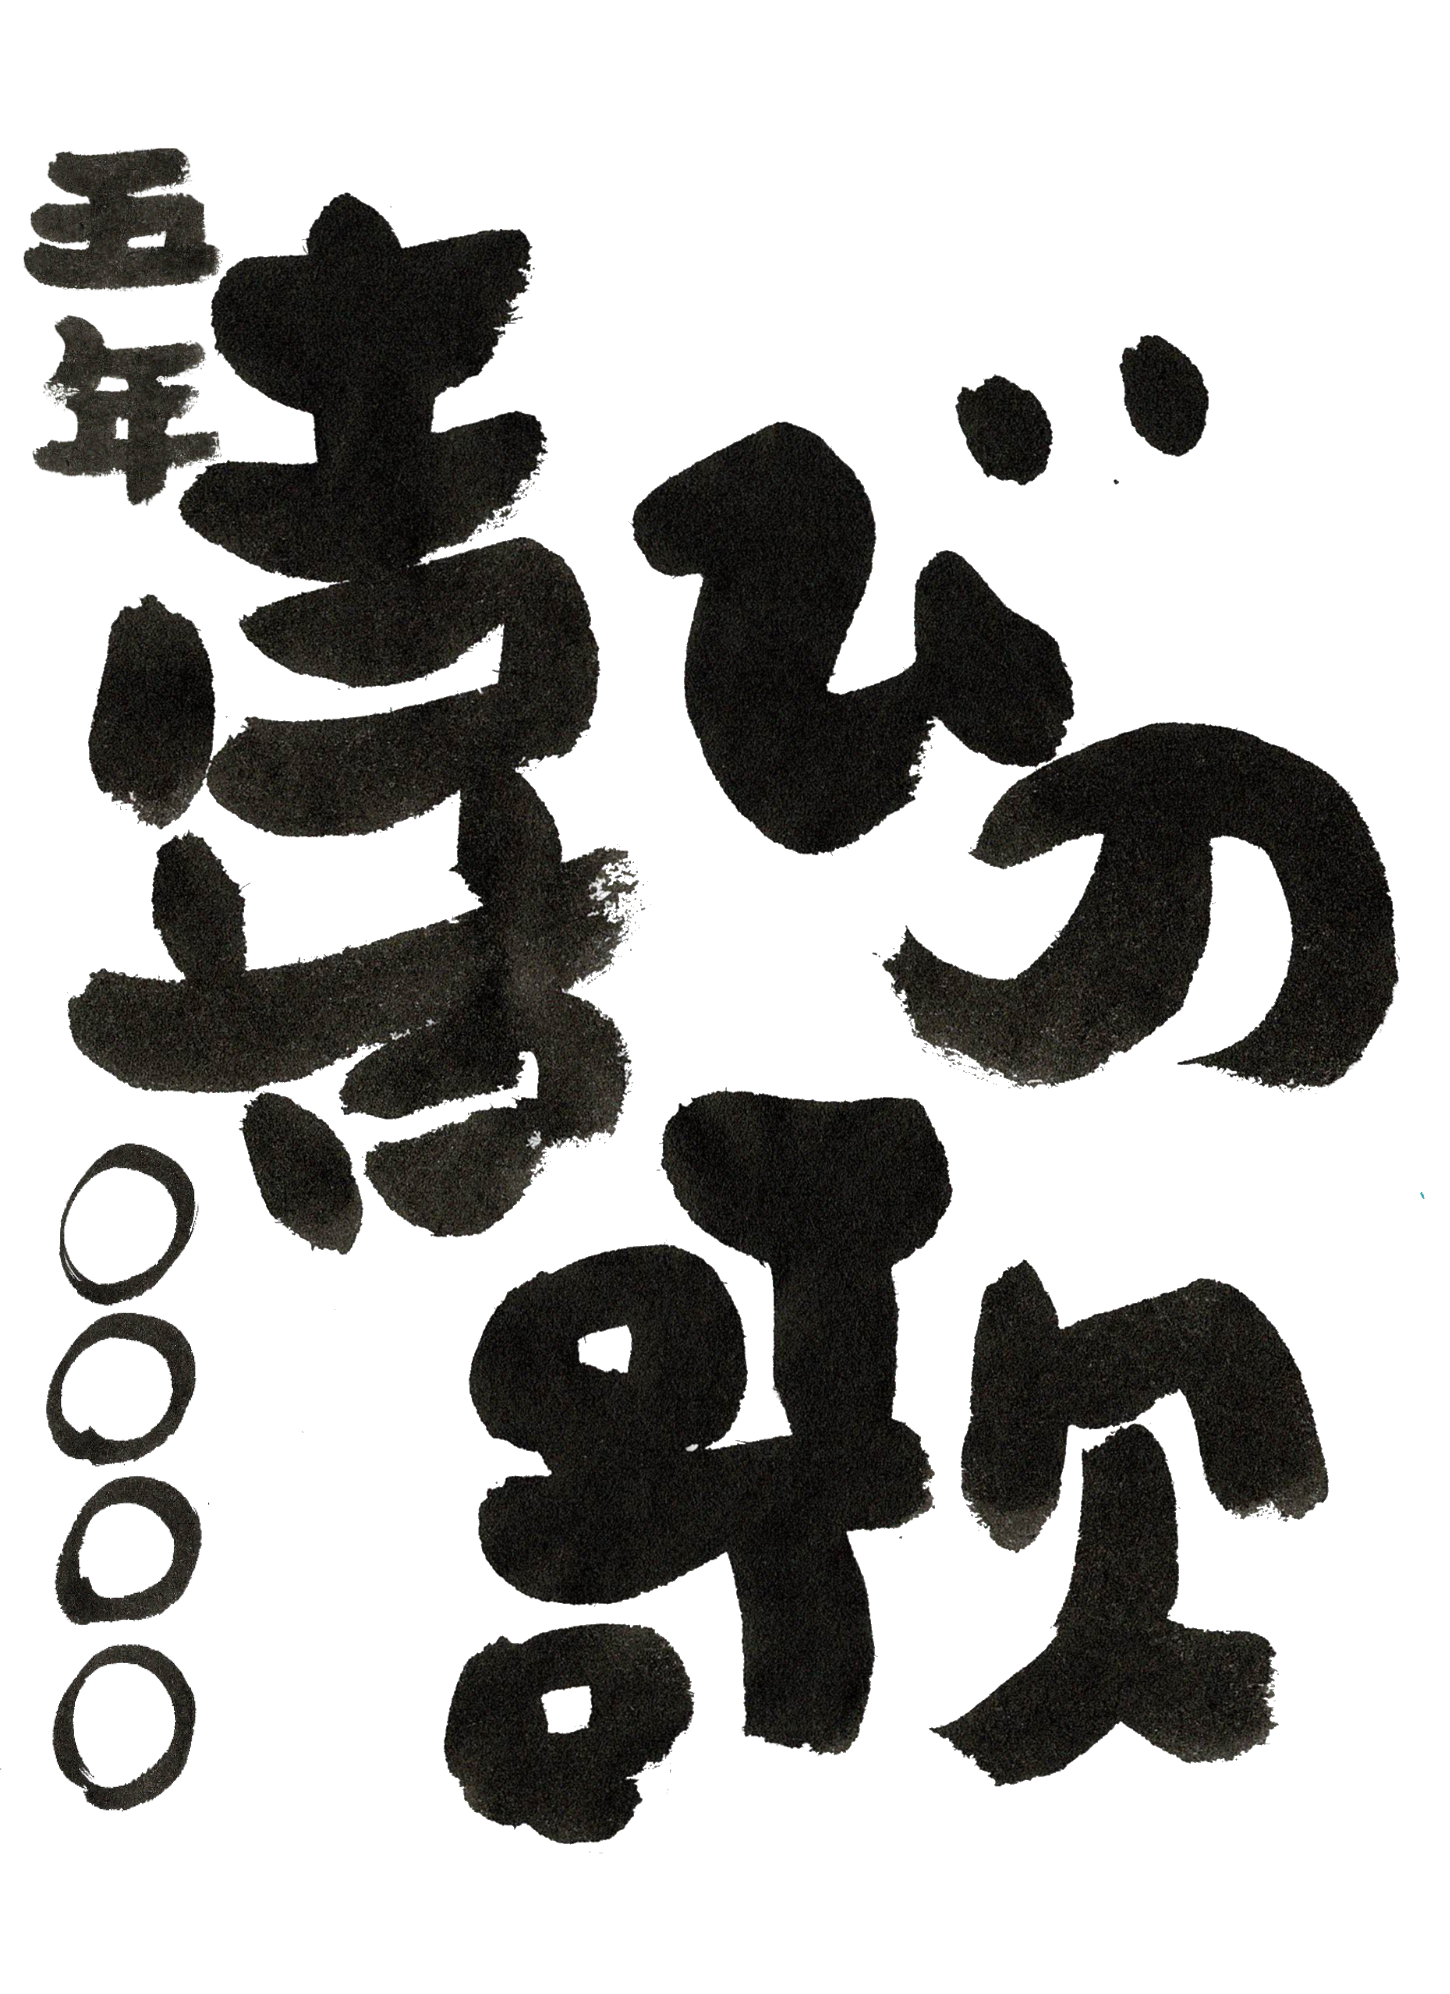 喜びの歌
五年 〇〇〇〇